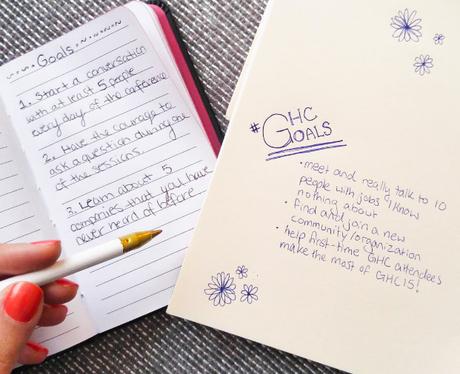 Goals
1. Start a conversation
with at least 5 people
every day of the conference
2. Have the courage to
ask a question during one
of the sessions.
3. Learn about 5
companies that you have
never heard of before
#GHC
GOALS
• meet and really talk to 10
people with jobs I know
nothing about
• find and join a new
community/organization
• help first-time GHC attendees
make the most of GHC15!